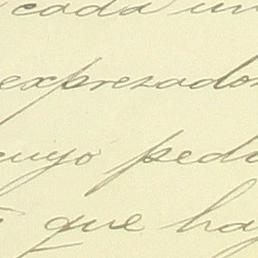 cada un
exprezados
cuyo pedi
que ha